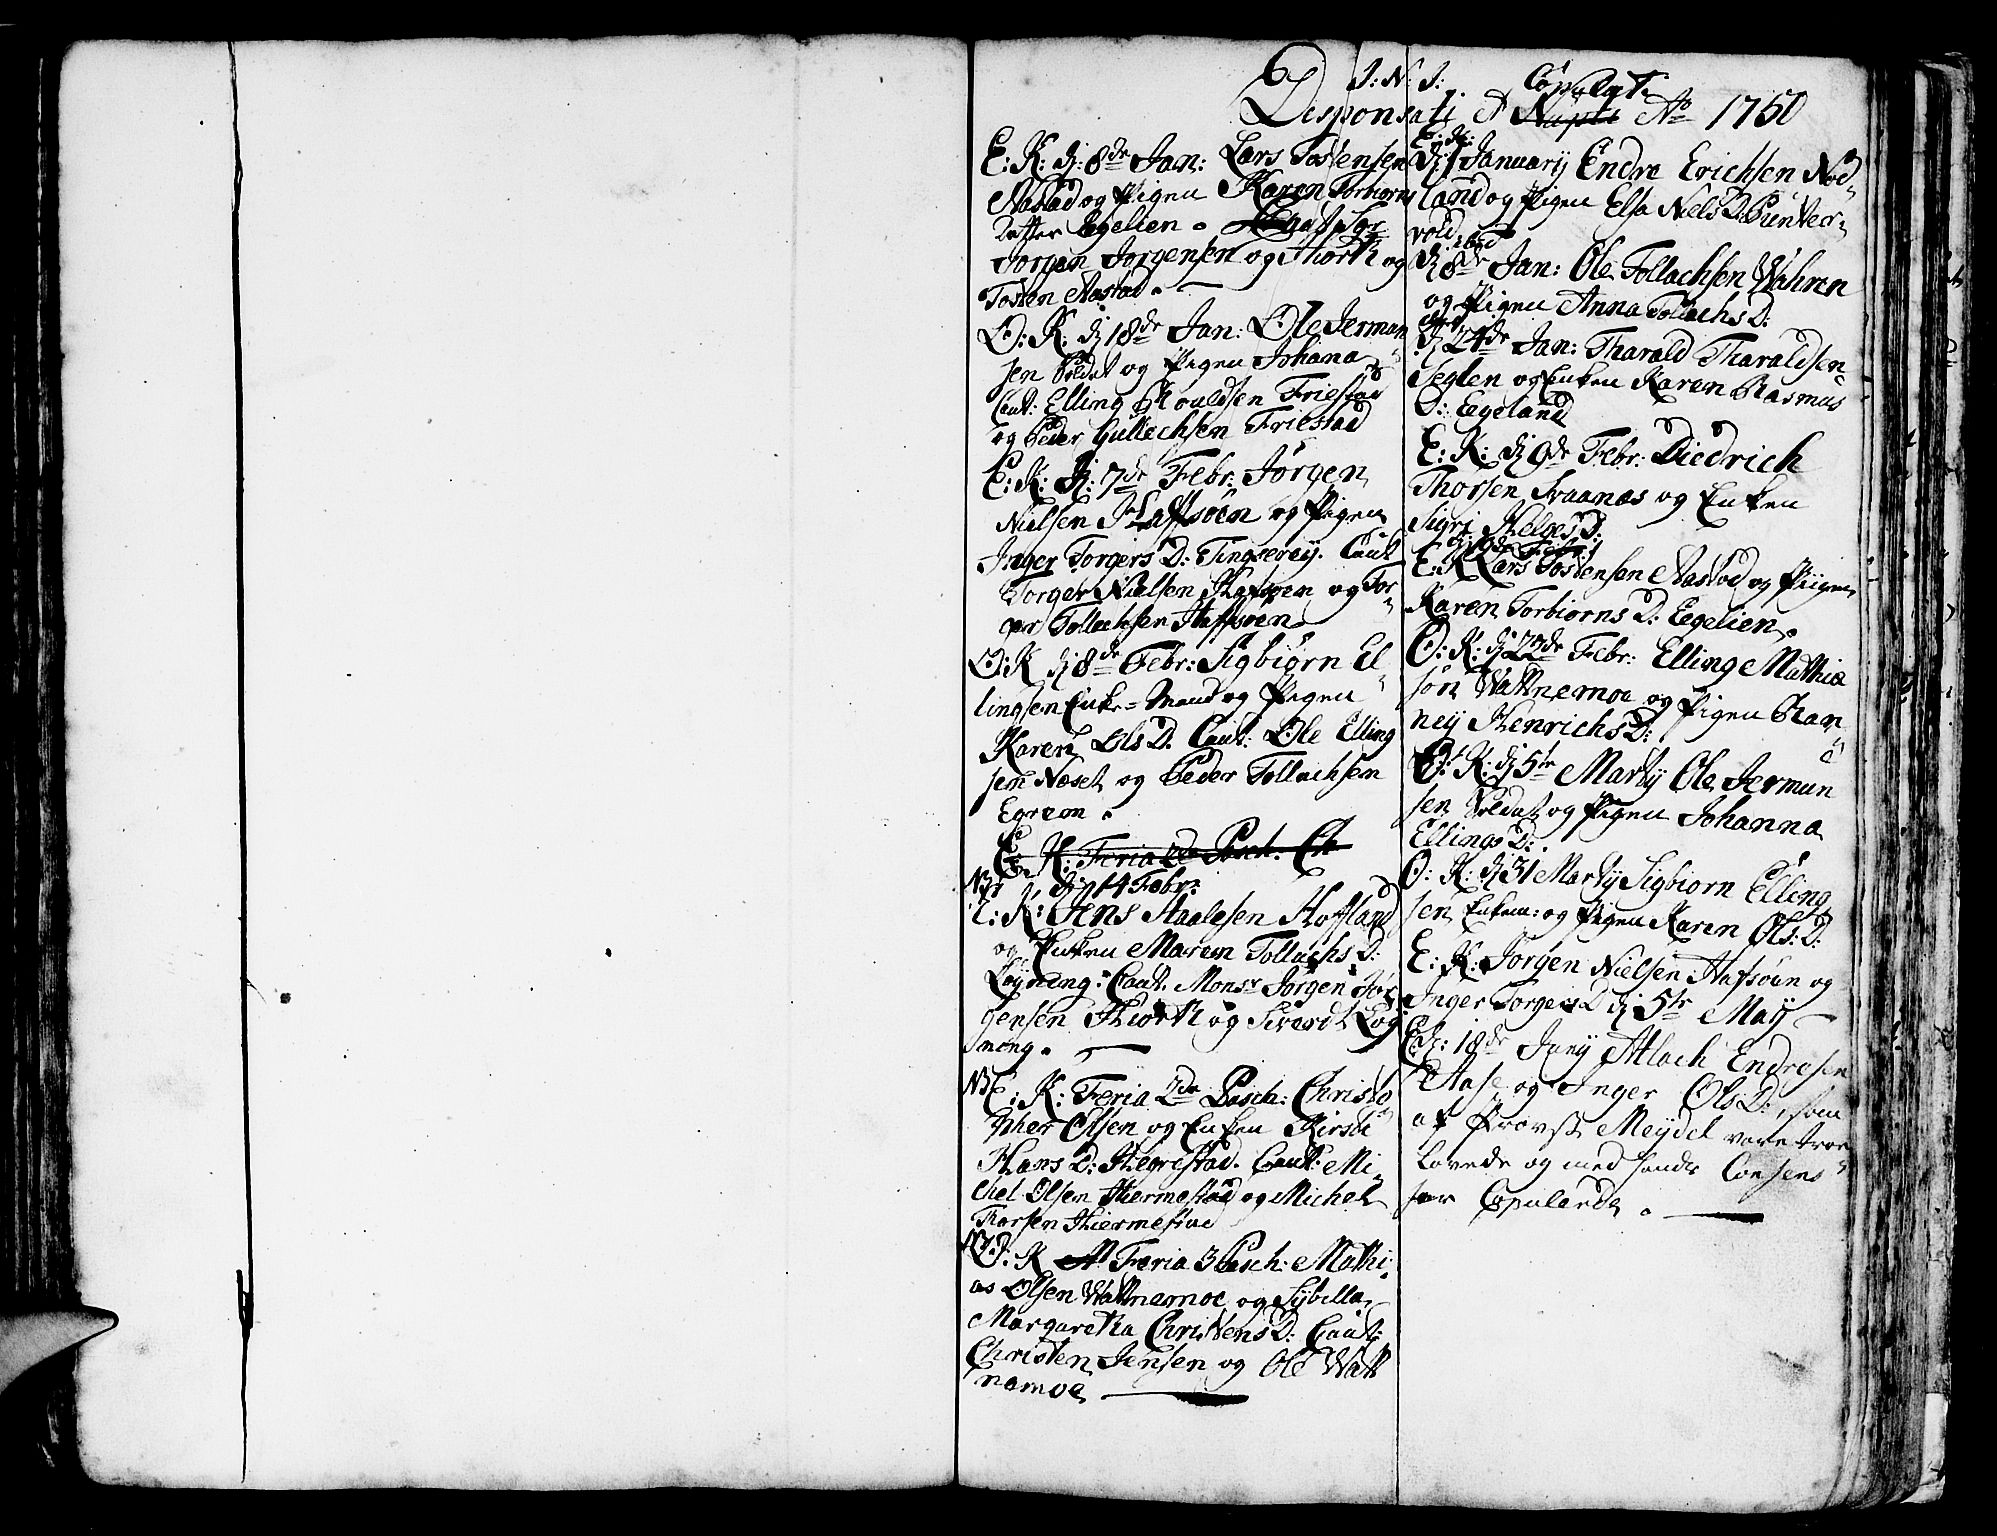 J: N: J:
Desponsati et Nupti Copulati Ao 1750
E: K: d: 8de Jan: Lars Tostensen
Aastad og Pigen Karen Torbiørns
Datter Egelien.
Jørgen Jørgensen og Hiorth og
Tosten Aastad.
O: K: d 18de Jan: Ole Jermun
sen Soldat og Pigen Johana
Caut: Elling Rouldsen Friestad
og Peder Gullechsen Friestad
E: K: d: 7de Febr: Jørgen
Nielsen Haffsøen og Pigen
Inger Torgers D: Tingserey. Caut
Torger Nielsen Hafsøen og Tor-
ger Tollachsen Haffsøen
O: K d 8de Febr: Sigbiørn El-
lingsen Enke-Mand og Pigen
Karen Ols D. Caut: Ole Elling
sen Næset og Peder Tollachsen
Egrem.
E. K: Feria 2de Pasch. Ch
NB d 14 Febr:
E: K: Jens Haalesen Hoffland
og Enken Maren Tollachs D:
Løyning: Caut. Monsr Jørgen Jør
gensen Hiorth og Siverdt Løg
ning.
NB E: K: Feria 2de Pasch: Christo
pher Olsen og Enken Kirsti
Hans D: Hegrestad. Caut: Mi-
chel Olsen Hiermestad og Michel
Thorsen Hiermestad
NB O: K Feria 3 Pasch: Mathi-
as Olsen Watnemoe og Sybilla
Margaretha Christens D: Caut:
Christen Jensen og Ole Watt
nemoe
E: K:
d 1 January Endre Erichsen Nod-
land og Pigen Elsa Niels D. Punter-
vold
ibid
d 8de Jan: Ole Tollachsen Wahren
og Pigen Anna Tollachs D:
ibid
d 24de Jan: Tharald Tharaldsen
Seglem og Enken Karen Rasmus
D: Egeland
E: K: d 9de Febr: Diedrich
Thorsen Svaanæs og Enken
Sigri Helges D:
Febr:
E: K Lars Tostensen Aastad og Pigen
Karen Torbiørns D: Egelien.
O: K: d 22de Febr: Elling Mathia
søn Watnemoe og Pigen Ran-
ney Henrichs D:
O: K: d 5te Marty Ole Jermun
sen Soldat og Pigen Johanna
Ellings D:
O: K: d 31 Marty Sigbiørn Elling
sen Enkem: og Pigen Karen Ols: D:
E: K: Jørgen Nielsen Hafsøen og
Inger Torgers D d 5te May
18de Juny Atlach Endresen
Aase og Inger Ols D:, som
af Provst Meydel vare troe
lovede og med hands Consens
her Copulerede.